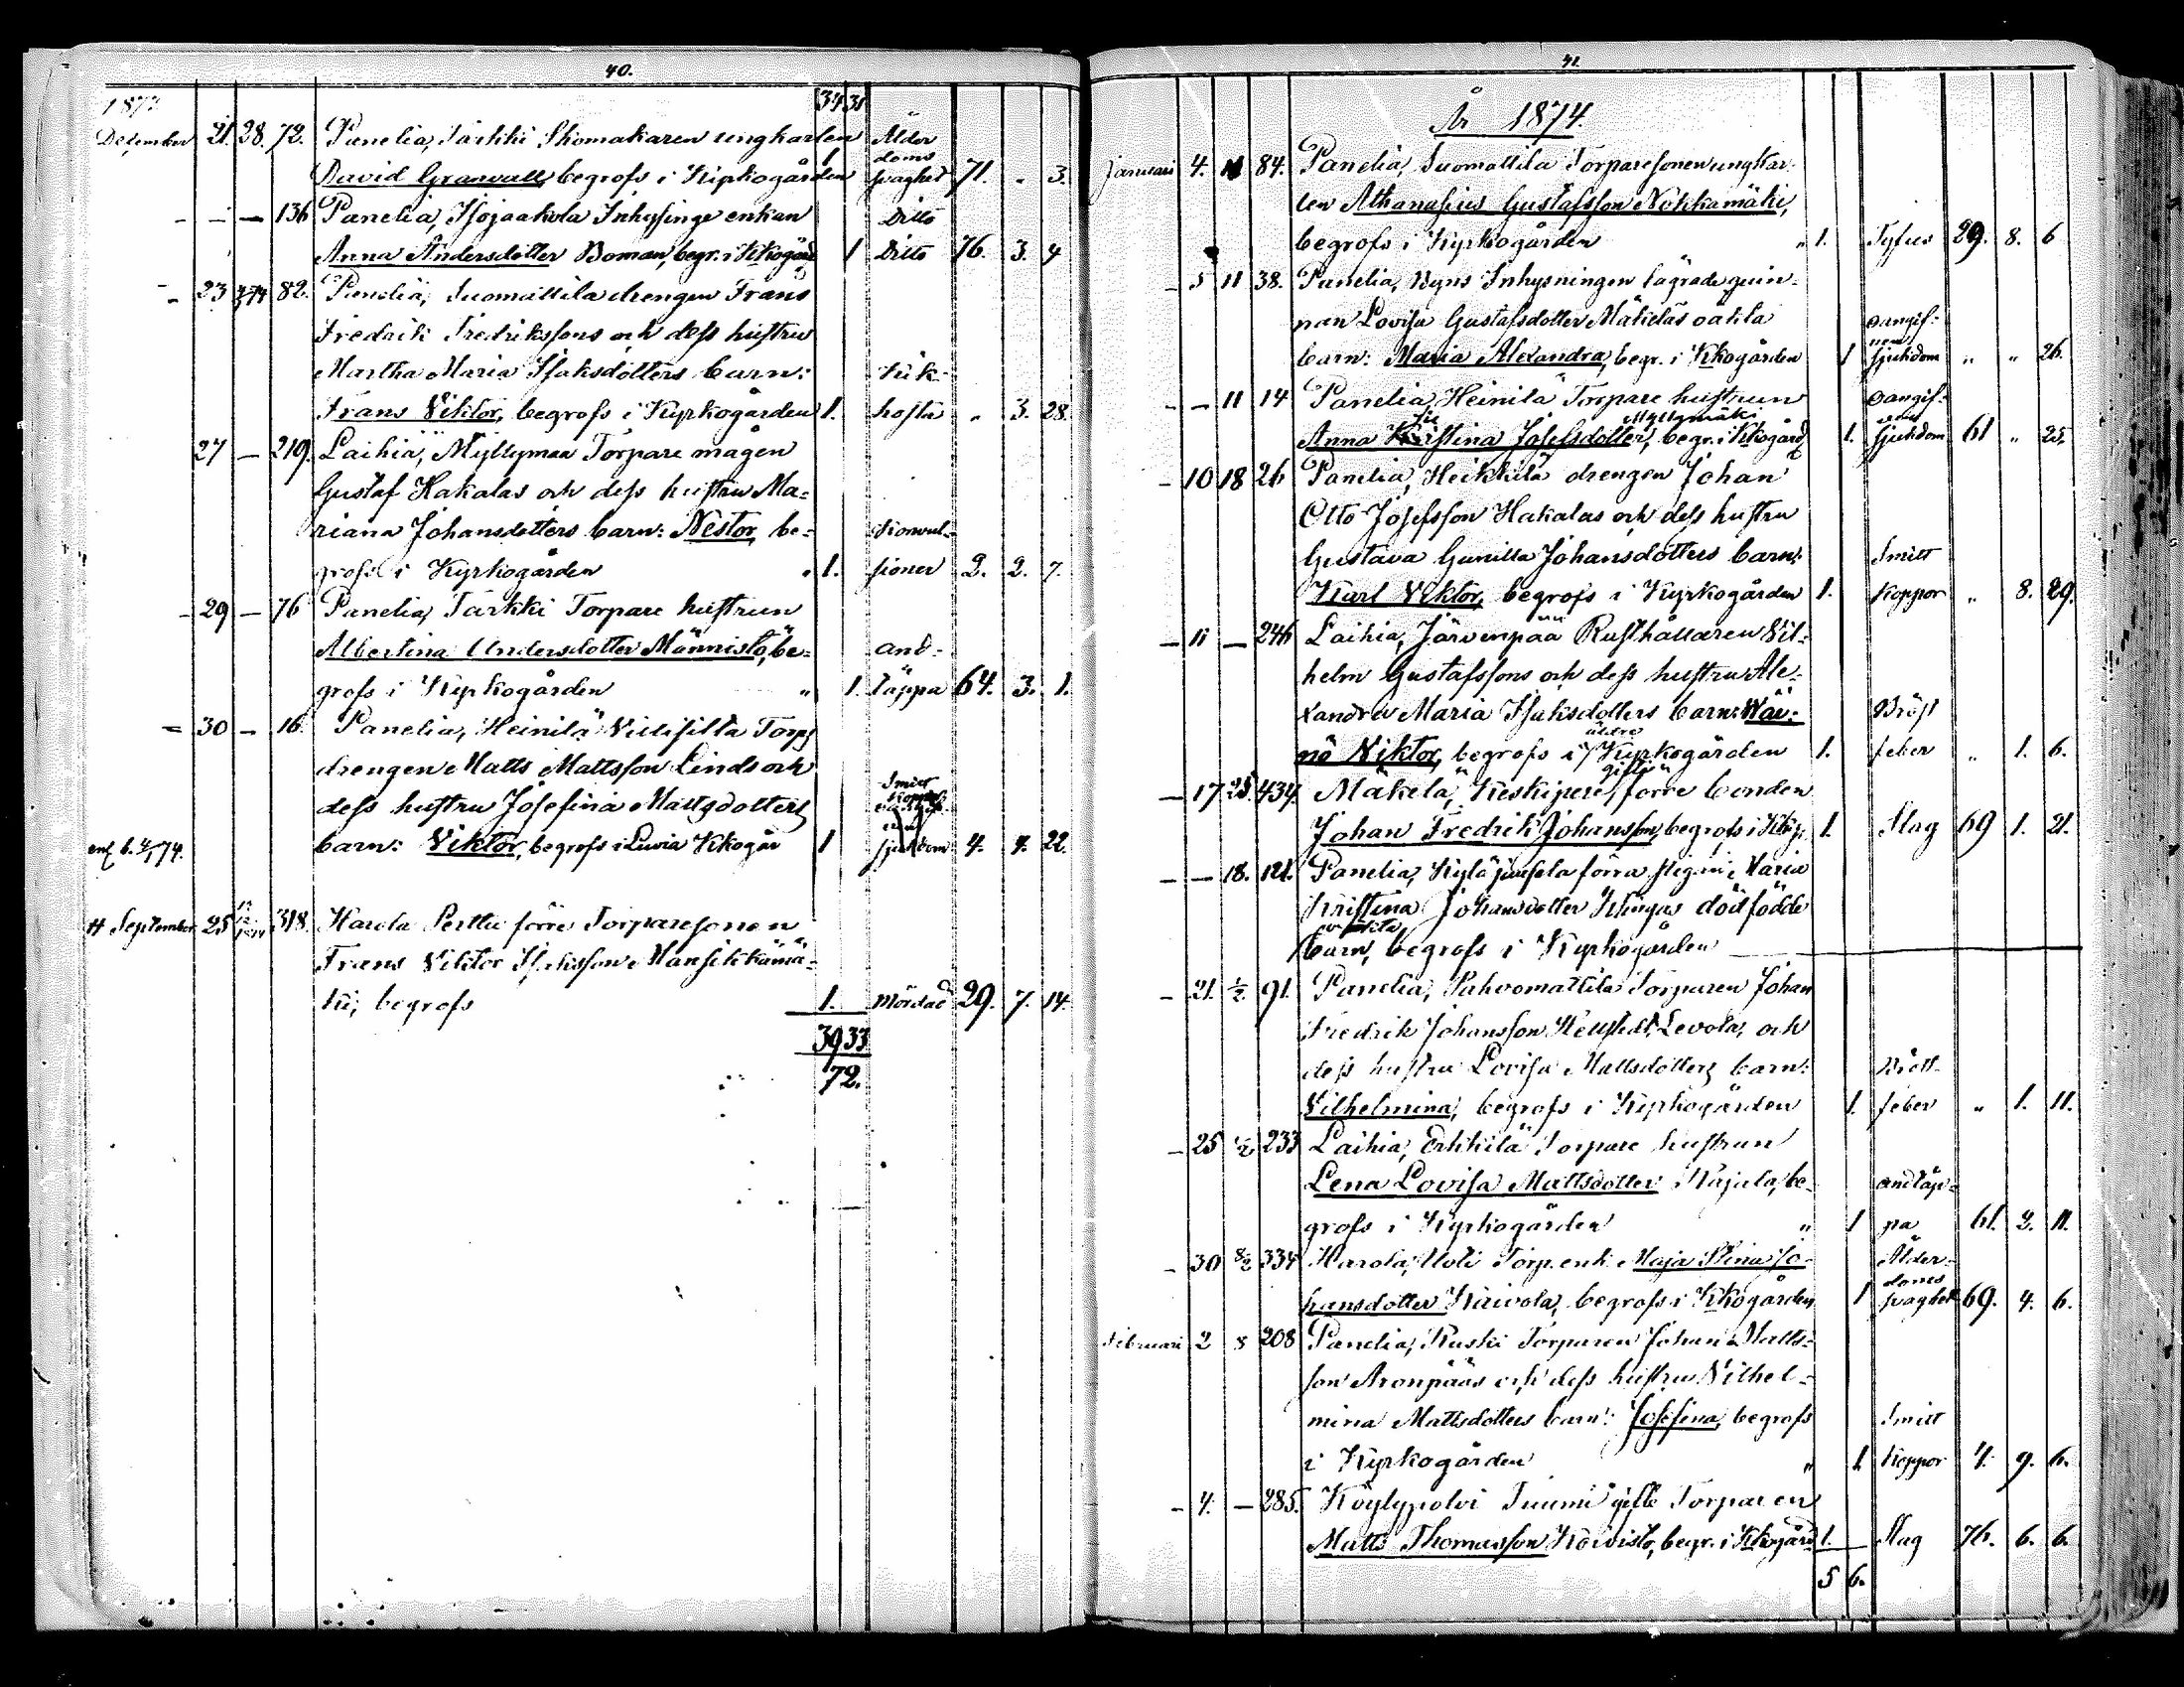 40.
1873
34 31
December 21. 28. 72. Panelia, Tarkki Skomakaren ungkarlen Ålder
doms
David Granvall, begrofs i Kyrkogården 1 svaghet 71. " 3.
- - - 136 Panelia, Isojaakola Inhysinge enkan Ditto
Anna Andersdotter Boman, begr. i Kkogård 1 Ditto 76. 3. 4
- 23 82. Panelia, Suomattila drengen Frans
Fredrik Fredrikssons och dess hustru
Martha Maria Isaksdotters barn: Kik-
Frans Viktor, begrofs i Kyrkogården 1. hosta " 3. 28.
27 - 219. Laihia, Myllymaa Torpare mågen
Gustaf Hakalas och dess hustru Ma-
riana Johansdotters barn: Nestor, be- Konvul-
grofs i Kyrkogården " 1. sioner 2. 2. 7.
- 29 - 76 Panelia, Tarkki Torpare hustrun
Albertina Andersdotter Männistö, be- and-
grofs i Kyrkogården " 1. täppa 64. 3. 1.
- 30 - 16. Panelia, Heinilä Torp
drengen Matts Mattsson Linds och
dess hustru Josefina Mattsdotters Smitt
koppor
barn: Viktor, begrofs i Luvia Kkogår 1 sjukdom 4. 4. 22.
enl b. 4/1 74.
# September 25 318. Harola Perttu förre Torparesonen
Frans Viktor Isaksson Mansikkamä-
ki, begrofs 1. Mördad 29. 7. 14.
39 33
72.
41.
År 1874.
Januari 4. 11 84. Panelia, Suomattila Torparesonen ungkar-
len Athanasius Gustafsson Nokkamäki,
begrofs i Kyrkogården " 1. Tyfus 29. 8. 6
- 5 11 38. Panelia, Byns Inhysningen lägrade qvin-
nan Lovisa Gustafsdotter Mäkeläs oäkta oangif-
ven
barn: Maria Alexandra, begr. i Kkogården 1 sjukdom " " 26.
- - 11 14 Panelia, Heinilä Torpare hustrun oangif-
Myllymäki ven
Anna Kristina Josefsdotter, begr. i Kkogård 1. sjukdom 61 " 25.
- 10 18 26 Panelia, Heikkilä drengen Johan
Otto Josefsson Hakalas och dess hustru
Gustava Gunilla Johansdotters barn: Smitt
Karl Viktor, begrofs i Kyrkogården 1. koppor " 8. 29.
- 11 - 246 Laihia, Järvenpää Rusthållaren Vil-
helm Gustafssons och dess hustru Ale-
xandra Maria Isaksdotters barn: Wäi- Bröst
äldre
nö Viktor, begrofs i Kyrkogården 1. feber " 1. 6.
gifte
- 17 25. 434. Mäkelä, Keskipere, förre bonden
Johan Fredrik Johansson, begrofs i Kkog. 1. Slag 69 1. 21.
- - 18. 121. Panelia, Kyläjuusela förra Maria
Kristina Johansdotter Klingas dödfödde
oäkta
barn, begrofs i Kyrkogården
- 21. 1/2 91. Panelia, Puhoomattila Torparen Johan
Fredrik Johansson Levola, och
dess hustru Lovisa Mattsdotters barn: Bröst-
Vilhelmina, begrofs i Kyrkogården 1. feber " 1. 11.
- 25 1/2 233 Laihia, Erkkilä Torpare hustrun
Lena Lovisa Mattsdotter Rajala, be- andtäp-
grofs i Kyrkogården " 1 pa 61. 2. 11.
- 30 8/2 334 Harola, Uoti Torp. enk. Maja Stina Jo- Ålder-
doms
hansdotter Koivola, begrofs i Kkogården 1 svaghet 69. 4. 6.
Februari 2 8 208 Panelia, Ruski Torparen Johan Matts-
son Aronpääs och dess hustru Vilhel-
mina Mattsdotters barn: Josefina, begrofs Smitt
i Kyrkogården " 1. koppor 4. 9. 6.
- 4. - 285. Köylypolvi Tuumi gifte Torparen
Matts Thomasson Koivisto, begr. i Kkogård 1. Slag 76. 6. 6.
5 6.